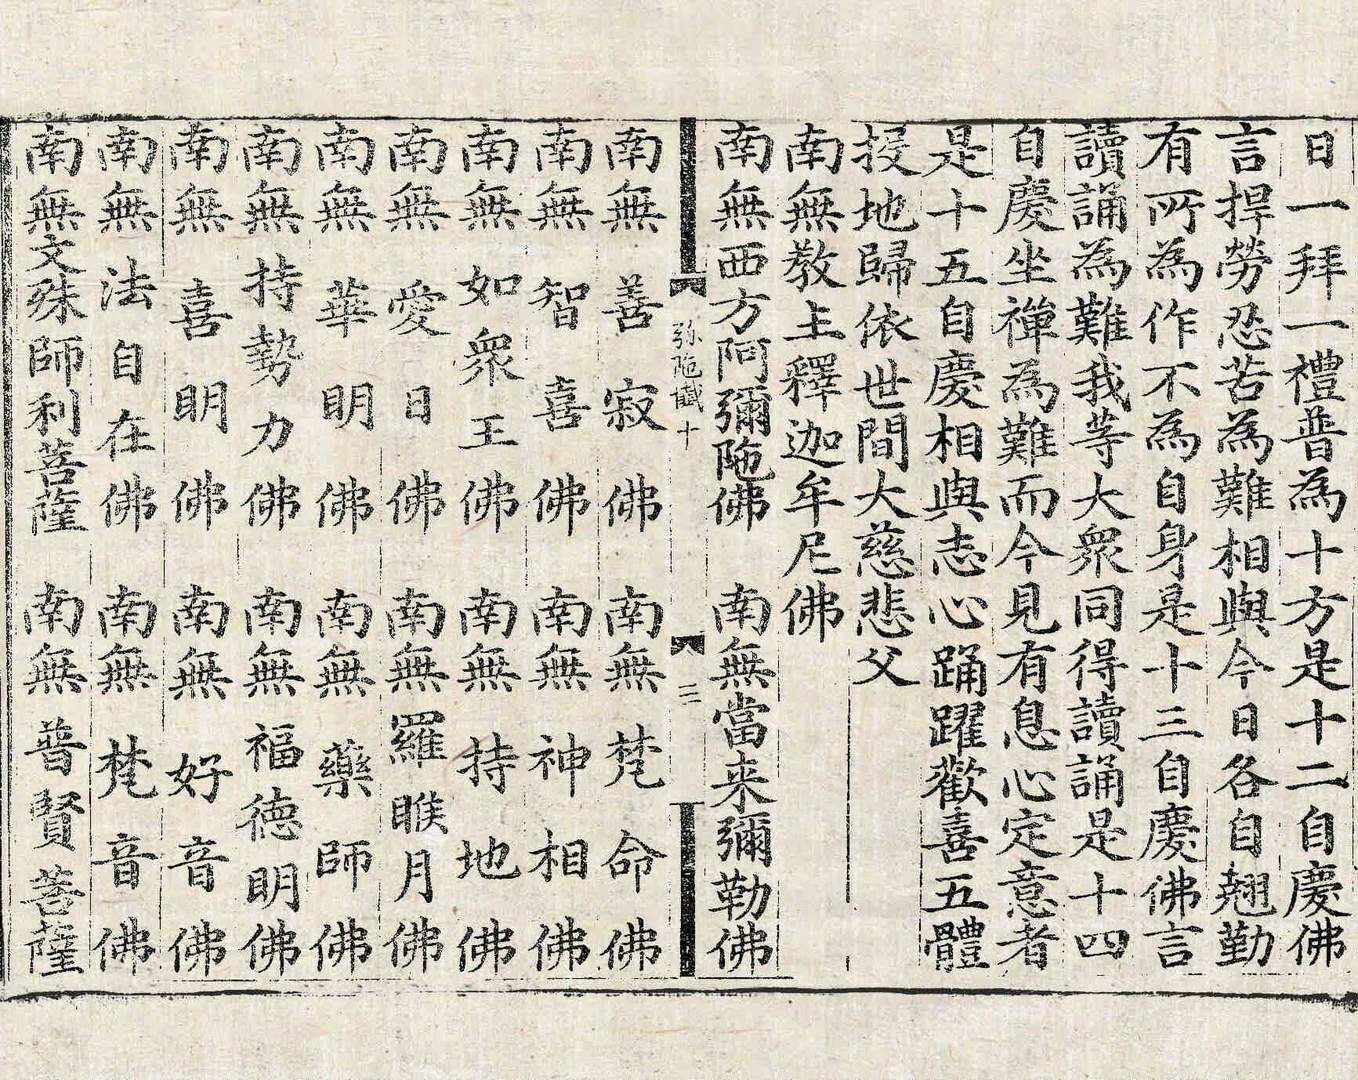 日一拜一禮普為十方是十二自慶佛
言捍勞忍苦為難相與今日各自翹勤
有所為作不為自身是十三自慶佛言
讀誦為難我等大眾同得讀誦是十四
自慶坐禪為難而今見有息心定意者
是十五自慶相與志心踊躍歡喜五體
投地歸依世間大慈悲父
南無教主釋迦牟尼佛
南無西方阿彌陁佛 南無當来彌勒佛
弥陁懺十 三
南無善寂佛 南無梵命佛
南無智喜佛 南無神相佛
南無如眾王佛 南無持地佛
南無愛日佛 南無羅睺月佛
南無華明佛 南無藥師佛
南無持勢力佛 南無福德明佛
南無喜明佛 南無好音佛
南無法自在佛 南無梵音佛
南無文殊師利菩薩 南無普賢菩薩